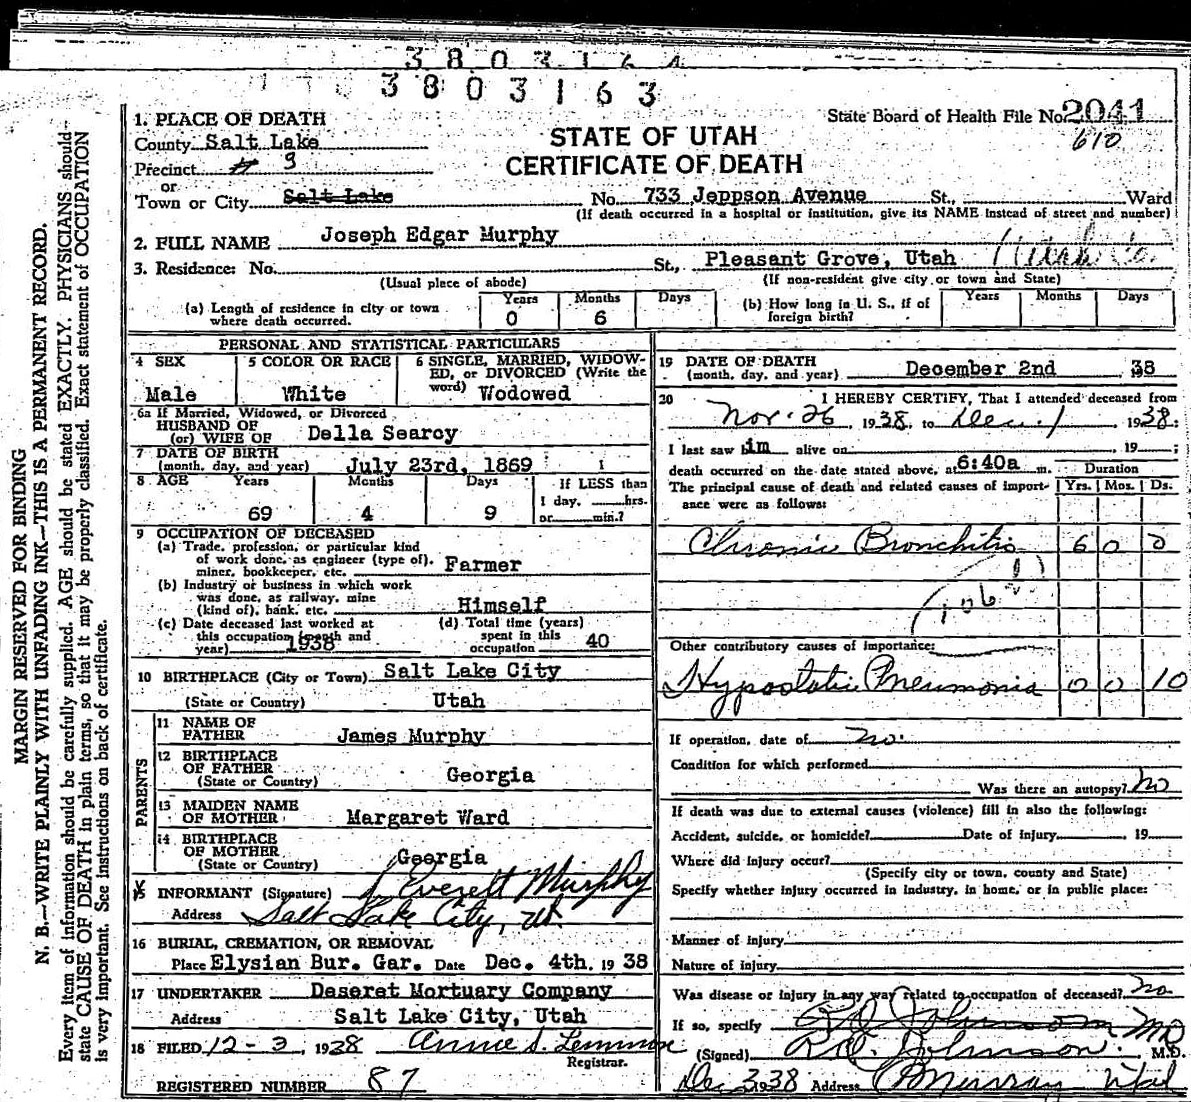 3803164
3803163
State Board of Health File No. 2041
610
STATE OF UTAH
CERTIFICATE OF DEATH
1. PLACE OF DEATH
County Salt Lake
Precinct # 9
or
Town or City Salt Lake No. 733 Jeppson Avenue St., Ward
(If death occurred in a hospital or institution, give its NAME instead of street and number)
2. FULL NAME Joseph Edgar Murphy
3. Residence: No. St., Pleasant Grove, Utah Utah Co.
(Usual place of abode) (If non-resident give city or town and State)
(a) Length of residence in city or town where death occurred. Years 0 Months 6 Days
(b) How long in U. S., if of foreign birth? Years Months Days
PERSONAL AND STATISTICAL PARTICULARS
4 SEX Male
5 COLOR OR RACE White
6 SINGLE, MARRIED, WIDOWED, or DIVORCED (Write the word) Wodowed
6a If Married, Widowed, or Divorced
HUSBAND OF
(or) WIFE OF Della Searcy
7 DATE OF BIRTH
(month, day, and year) July 23rd, 1869
8 AGE Years 69 Months 4 Days 9
If LESS than
1 day, hrs.
or min.?
9 OCCUPATION OF DECEASED
(a) Trade, profession, or particular kind
of work done, as engineer (type of),
miner, bookkeeper, etc. Farmer
(b) Industry or business in which work
was done, as railway, mine
(kind of), bank, etc. Himself
(c) Date deceased last worked at
this occupation (month and
year) 1938
(d) Total time (years)
spent in this
occupation 40
10 BIRTHPLACE (City or Town) Salt Lake City
(State or Country) Utah
PARENTS
11 NAME OF
FATHER James Murphy
12 BIRTHPLACE
OF FATHER
(State or Country) Georgia
13 MAIDEN NAME
OF MOTHER Margaret Ward
14 BIRTHPLACE
OF MOTHER
(State or Country) Georgia
15 INFORMANT (Signature) J Everett Murphy
Address Salt Lake City, Ut.
16 BURIAL, CREMATION, OR REMOVAL
Place Elysian Bur. Gar. Date Dec. 4th. 1938
17 UNDERTAKER Deseret Mortuary Company
Address Salt Lake City, Utah
18 FILED 12-3, 1938 Annie S. Lemmon
Registrar.
REGISTERED NUMBER 87
19 DATE OF DEATH
(month, day, and year) December 2nd 38
20 I HEREBY CERTIFY, That I attended deceased from
Nov. 26, 1938, to Dec. 1 1938;
I last saw him alive on , 19 ;
death occurred on the date stated above, at 6:40a m.
The principal cause of death and related causes of importance were as follows:
Duration
Yrs. Mos. Ds.
Chronic Bronchitis 6 0 0
106
Other contributory causes of importance:
Hypostatic Pneumonia 0 0 10
If operation, date of no.
Condition for which performed
Was there an autopsy? no
If death was due to external causes (violence) fill in also the following:
Accident, suicide, or homicide? Date of injury , 19
Where did injury occur?
(Specify city or town, county and State)
Specify whether injury occurred in industry, in home, or in public place:
Manner of injury
Nature of injury
Was disease or injury in any way related to occupation of deceased? no
If so, specify Johnson MD
(Signed) Johnson. M.D.
Dec 3 1938 Address Murray Utah
MARGIN RESERVED FOR BINDING
N. B.—WRITE PLAINLY WITH UNFADING INK—THIS IS A PERMANENT RECORD.
Every item of information should be carefully supplied. AGE should be stated EXACTLY. PHYSICIANS should
state CAUSE OF DEATH in plain terms, so that it may be properly classified. Exact statement of OCCUPATION
is very important. See instructions on back of certificate.